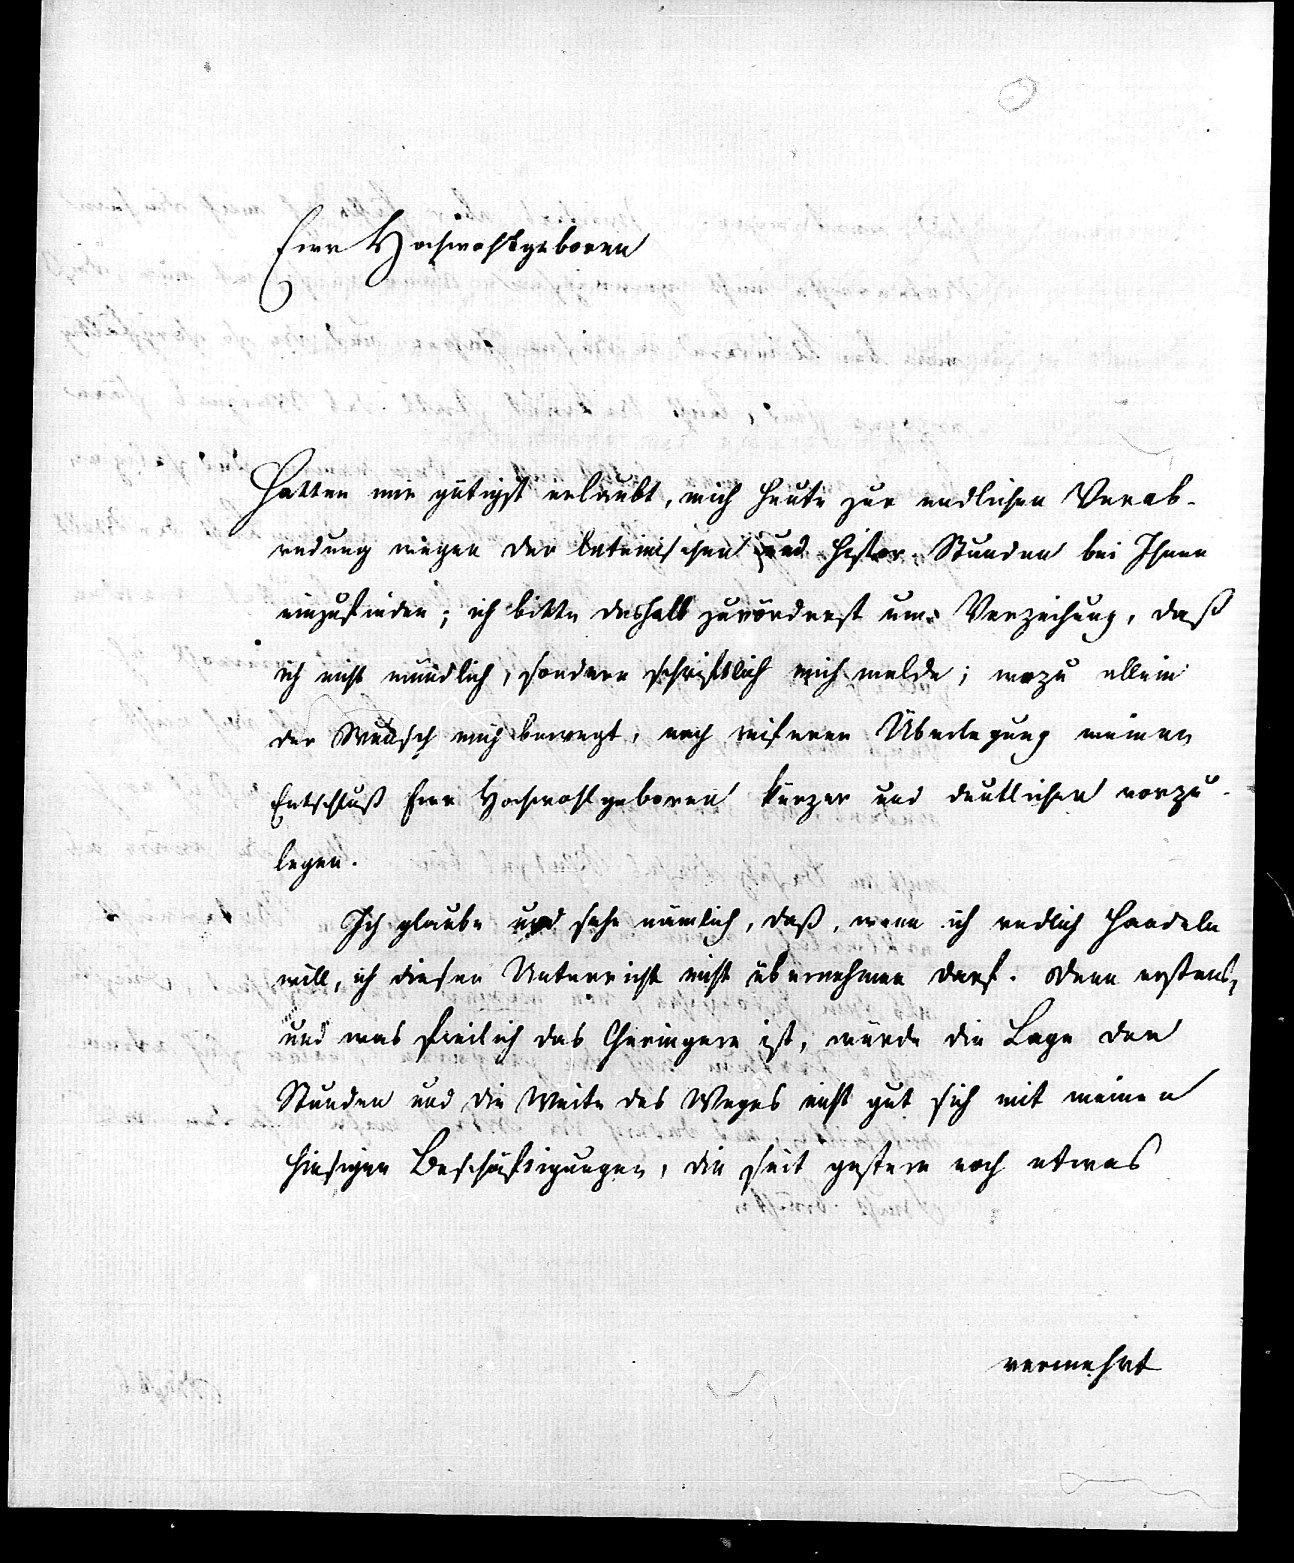 Euer Hochwohlgeboren
Hatten mir gütigst erlaubt, mich heute zur endlichen Verab-
redung wegen der lateinischen und histor. Stunden bei Ihnen
einzufinden; ich bitte deshalb zuvörderst um Verzeihung, daß
ich nicht mündlich, sondern schriftlich mich melde; wozu allein
der Wunsch mich bewegt, nach reiferer Überlegung meinen
Entschluß Euer Hochwohlgeboren kürzer und deutlicher vorzu-
legen.
Ich glaube und sehe nämlich, daß, wenn ich redlich handeln
will, ich diesen Unterricht nicht übernehmen darf. Denn erstens,
und was freilich das Geringere ist, würde die Lage der
Stunden und die Weite des Weges nicht gut sich mit meinen
hiesigen Beschäftigungen, die seit gestern noch etwas
vermehrt